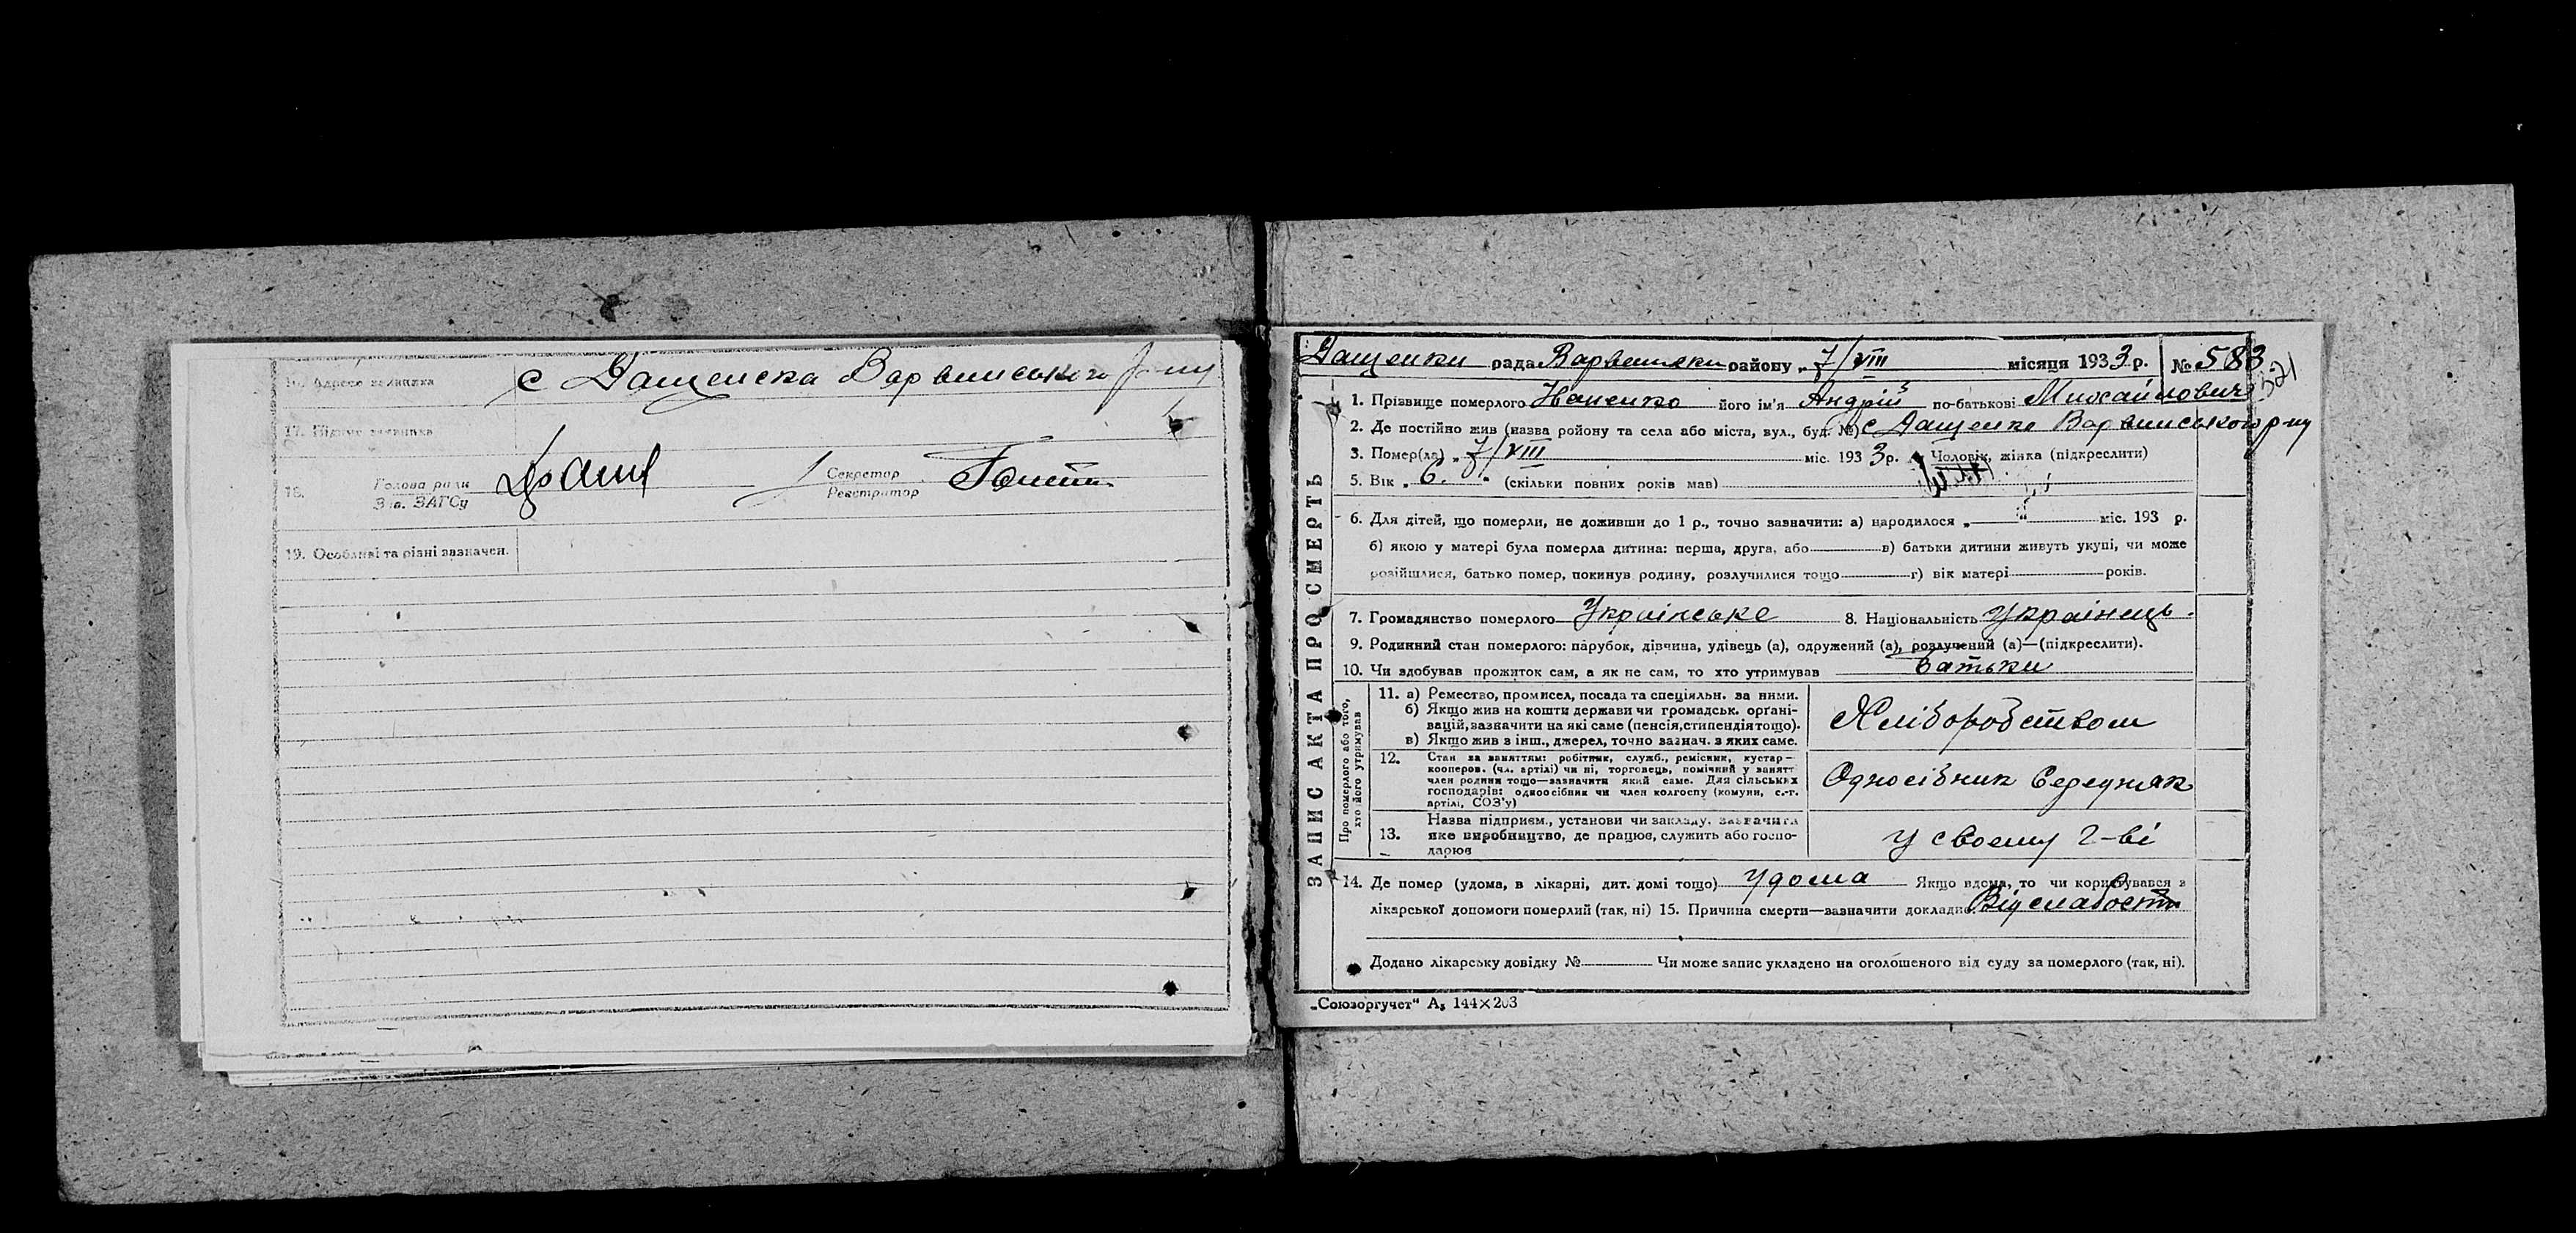 16. Адреса заявника с Дащенка Варвинського р-ну
17. Підпис заявника
18. Голова ради
Зав. ЗАГСу
Секретар
Реєстратор
19. Особливі та різні зазначен.
Дащенки рада Варвенски району „ 7/VIII місяця 1933 р. № 583.
321
1. Прізвище померлого його ім'я Андрій по-батькові Михайлович
2. Де постійно жив (назва ройону та села або міста, вул., буд. №) с Дащенка Варвинського р-ну
3. Помер(ла) „ 7/VIII міс. 1933 р. Чоловік, жінка (підкреслити)
5. Вік „ 6. " (скільки повних років мав)
6. Для дітей, що померли, не доживши до 1 р., точно зазначити: а) народилося „ " міс. 193 р.
б) якою у матері була померла дитина: перша, друга, або в) батьки дитини живуть укупі, чи може
розійшлися, батько помер, покинув родину, розлучилися тощо г) вік матері років.
7. Громадянство померлого Українське 8. Національність Українець.
9. Родинний стан померлого: парубок, дівчина, удівець (а), одружений (а), розлучений (а)—(підкреслити).
10. Чи здобував прожиток сам, а як не сам, то хто утримував батьки
11. а) Ремество, промисел, посада та спеціяльн. за ними.
б) Якщо жив на кошти держави чи громадськ. орґані-
зацій, зазначити на які саме (пенсія, стипендія тощо).
в) Якщо жив з інш., джерел, точно зазнач. з яких саме.
Хліборобством
12. Стан за заняттям: робітник, служб., ремісник, кустар—
кооперов. (чл. артілі) чи ні, торговець, помічний у занятт
член родини тощо—зазначити який саме. Для сільських
господарів: одноосібник чи член колгоспу (комуни, с.-г.
артілі, СОЗ'у)
Односібник Середняк
13. Назва підприєм., установи чи закладу, зазначити
яке виробництво, де працює, служить або госпо-
дарює
у своєму г-ві
14. Де помер (удома, в лікарні, дит. домі тощо) Удома Якщо вдома, то чи користувався з
лікарської допомоги померлий (так, ні) 15. Причина смерти—зазначити докладно Від слабости
Додано лікарську довідку № Чи може запис укладено на оголошеного від суду за померлого (так, ні).
ЗАПИС АКТА ПРО СМЕРТЬ
Про померлого або того,
хто його утримував
„Союзоргучет" А₅ 144×203